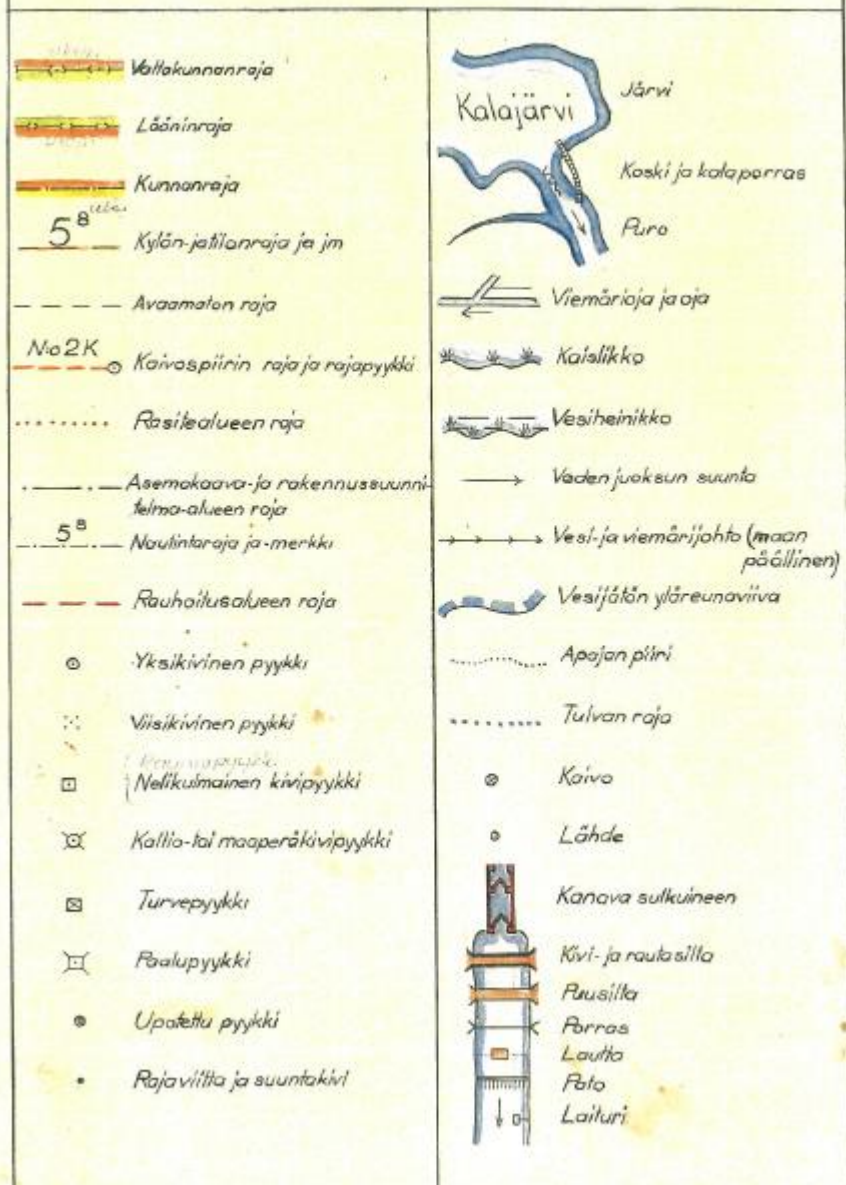 Valtakunnanraja
Lääninraja
Kunnanraja
5⁸
Kylän-ja tilanraja ja jm
Avaamaton raja
N:o 2K
Kaivospiirin raja ja rajapyykki
Rasitealueen raja
Asemakaava-ja rakennussuunni-
telma-alueen raja
5⁸
Nautintaraja ja -merkki
Rauhoitusalueen raja
Yksikivinen pyykki
Viisikivinen pyykki
Nelikulmainen kivipyykki
Kallio-tai maaperäkivipyykki
Turvepyykki
Paalupyykki
Upotettu pyykki
Rajaviitta ja suuntakivi
Kalajärvi
Järvi
Koski ja kalaporras
Puro
Viemärioja ja oja
Kaislikko
Vesiheinikko
Veden juoksun suunta
Vesi-ja viemärijohto (maan
päällinen)
Vesijätön yläreunaviiva
Apajan piiri
Tulvan raja
Kaivo
Lähde
Kanava sulkuineen
Kivi- ja rautasilta
Puusilta
Porras
Lautta
Pato
Laituri